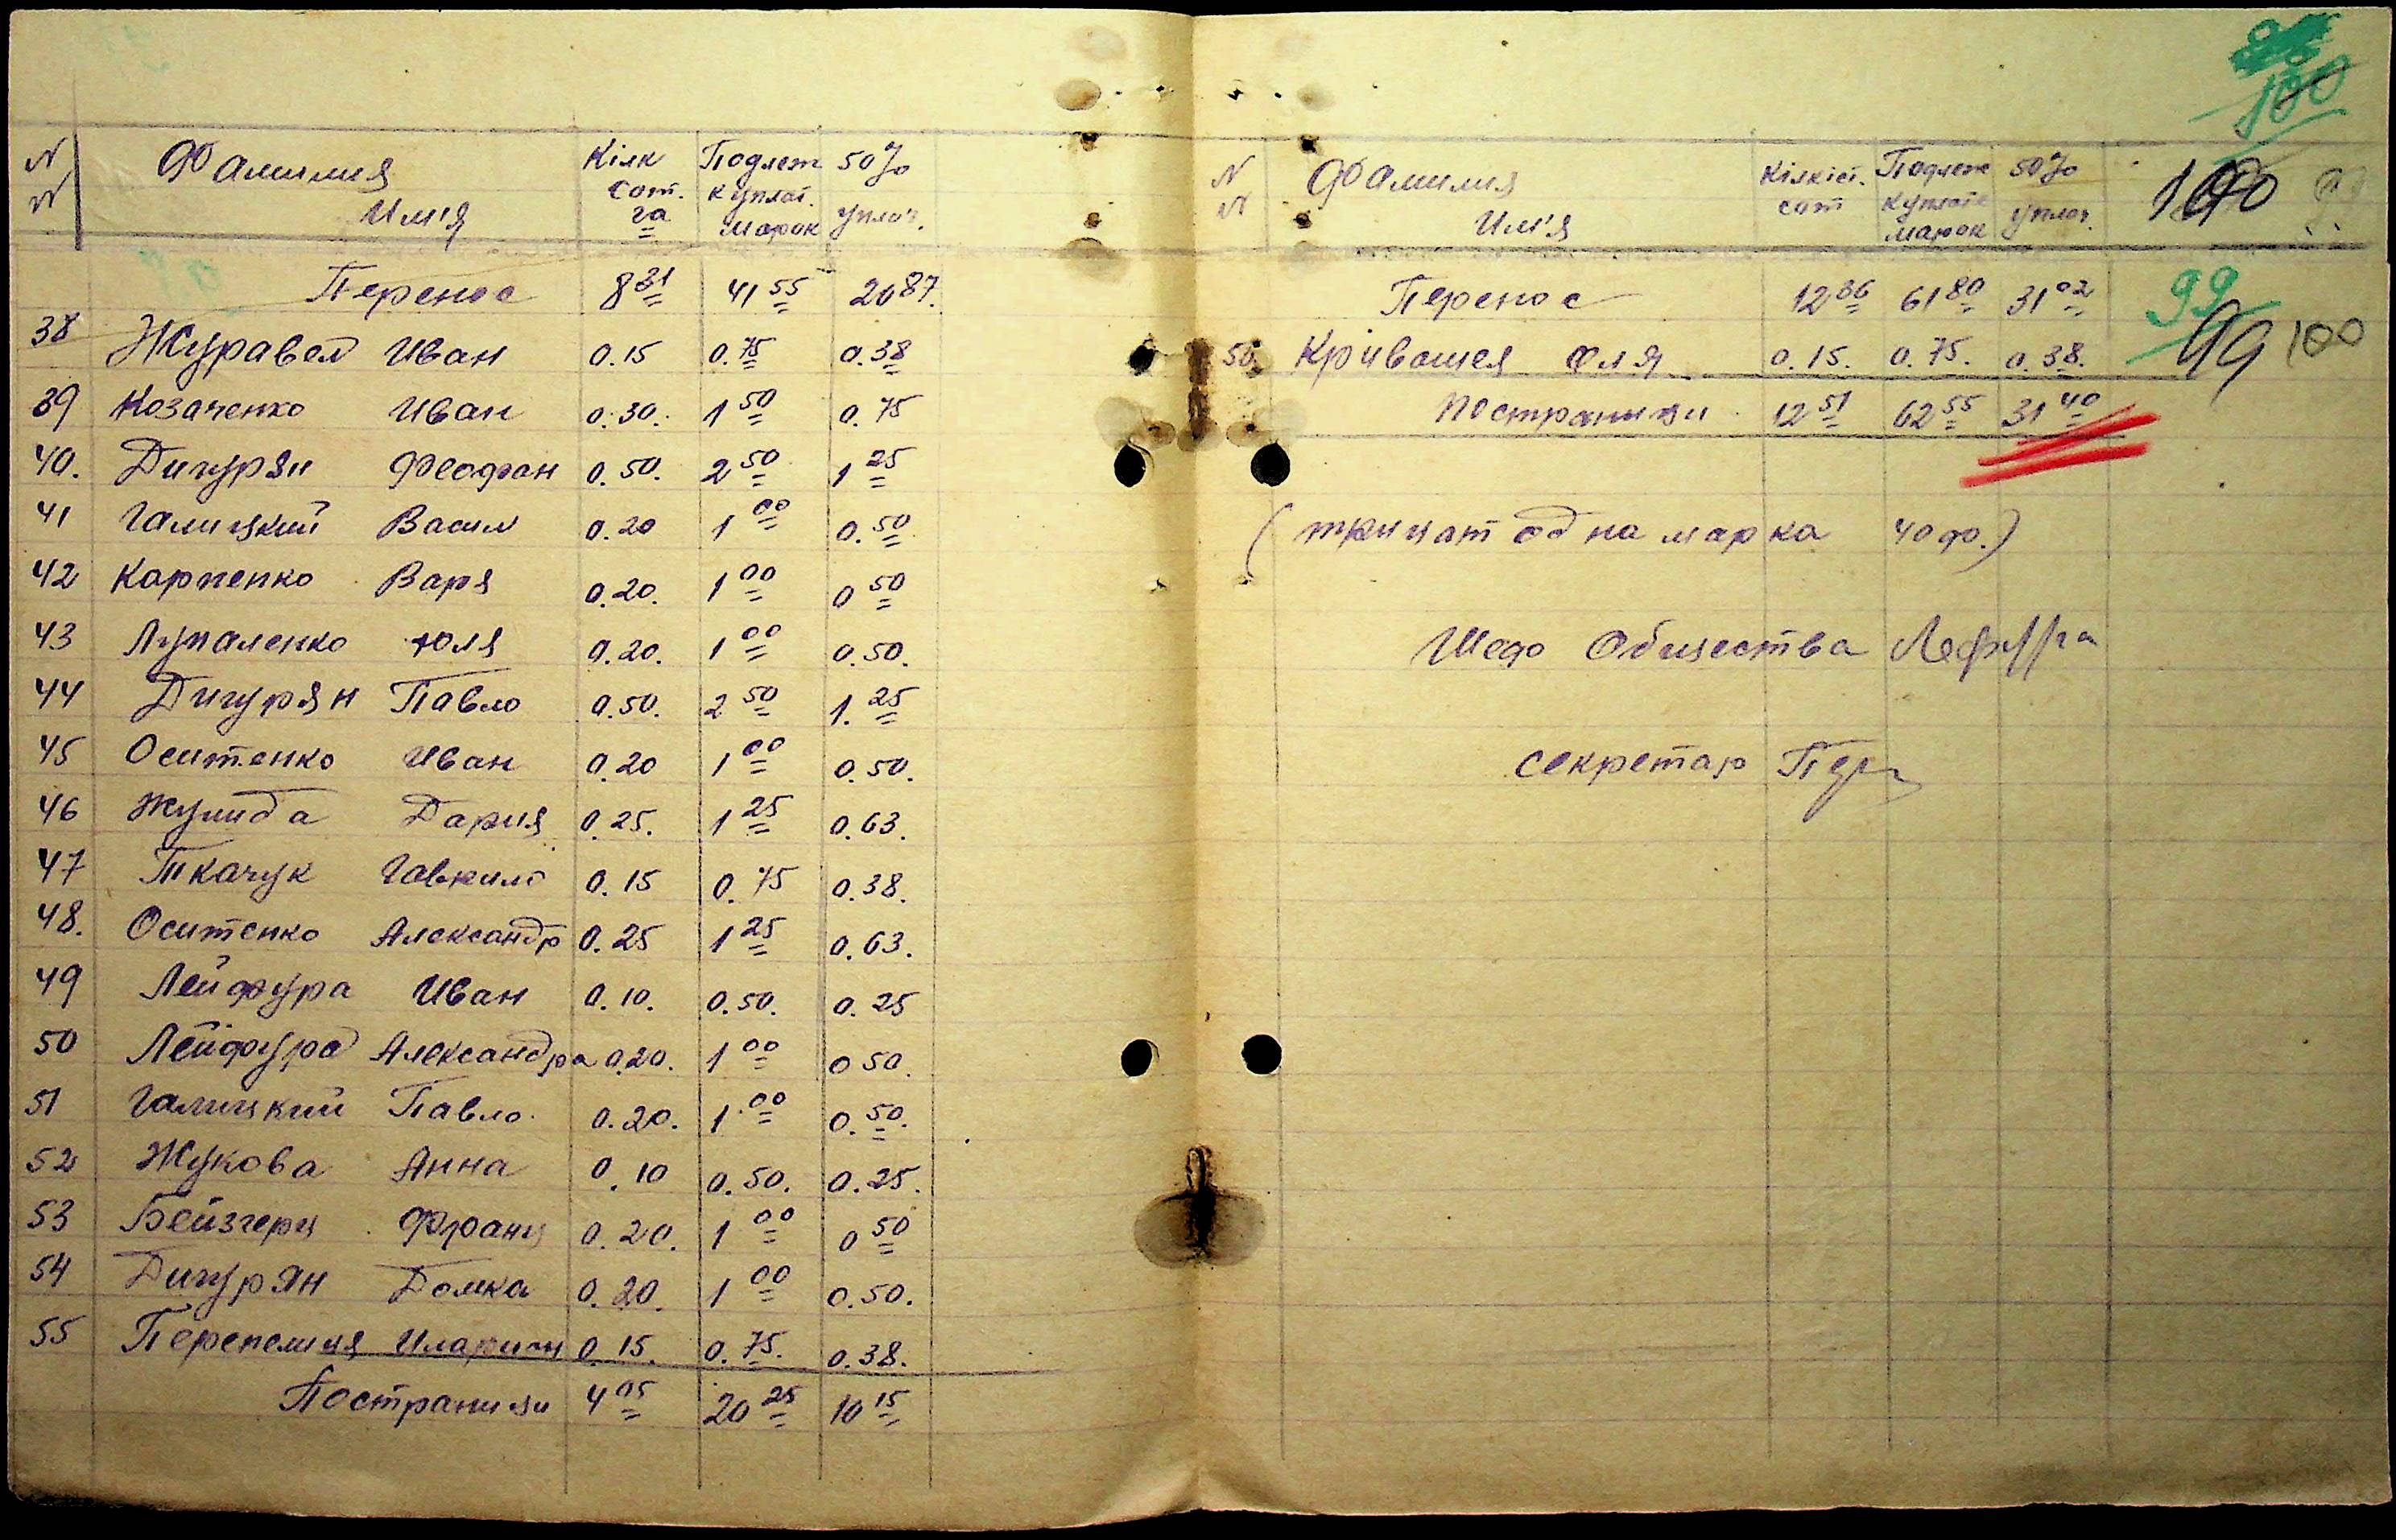 N
N
Фамилия
Им'я
Кілк
сот.
га
Подлеж
куплат.
марок
50%
уплоч.
Перенос 8 31 41 55 20 87.
38 Журавел Иван 0.15 0.75 0.38
39 Козаченко Иван 0.30. 1 50 0.75
40. Дигурян Феофан 0.50. 2 50 1 25
41 Галицкий Васил 0.20 1 00 0.50
42 Карпенко Варя 0.20. 1 00 0 50
43 Лупаленко Юля 0.20. 1 00 0.50.
44 Дигурян Павло 0.50. 2 50 1.25
45 Оситенко Иван 0.20 1 00 0.50.
46 Жулида Дария 0.25. 1 25 0.63.
47 Ткачук Гаврило 0.15 0.75 0.38.
48. Оситенко Александр 0.25 1 25 0.63.
49 Лейфура Иван 0.10. 0.50. 0.25
50 Лейфура Александра 0.20. 1 00 0 50.
51 Галицкий Павло. 0.20. 1 00 0.50.
52 Жукова Анна 0.10 0.50. 0.25.
53 Бейзгерц Франц 0.20. 1 00 0 50
54 Дигурян Домка 0.20. 1 00 0.50.
55 Перепелиця Иларион 0.15. 0.75. 0.38.
Постраници 4 05 20 25 10 15
100
N
N
Фамилия
Им'я
Кілкіст.
сот
Подлеж
куплате
марок
50%
уплоч.
100
Перенос 12 36 61 80 31 02
99
56. Кривошея Оля 0.15. 0.75. 0.38.
99 100
Постраници 12 51 62 55 31 40
(тридцат одна марка 40 ф.)
Шеф Общества Лефура
секретар